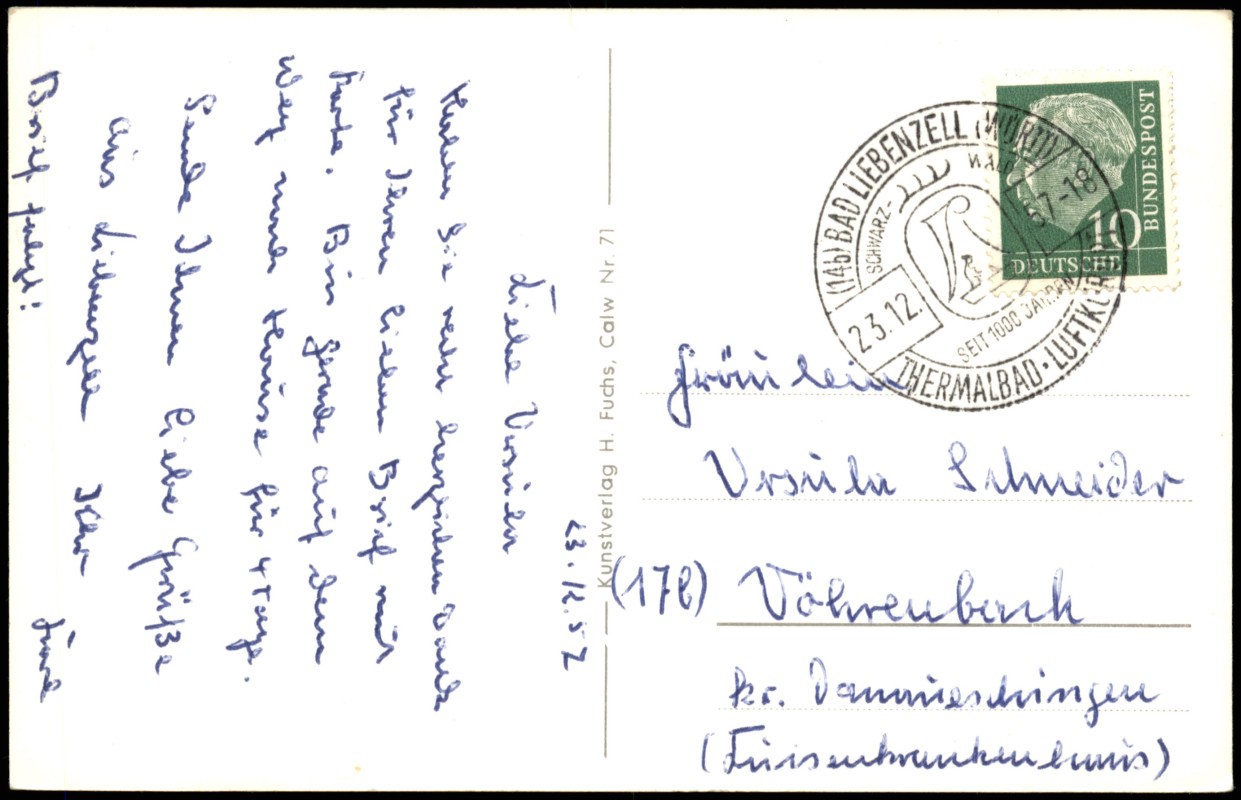 23.12.57
Liebe Ursula
Haben Sie recht herzlichen Dank
für Ihren lieben Brief mit
Karte. Bin gerade auf dem
Weg nach Hause für 4 Tage.
Sende Ihnen liebe Grüße
aus Liebenzell Ihr
Brief folgt!
Kunstverlag H. Fuchs, Calw Nr. 71
DEUTSCHE
BUNDESPOST
10
(14b) BAD LIEBENZELL (WÜRTT)
SCHWARZ-
WALD
23.12.
57-18
SEIT 1000 JAHREN
THERMALBAD · LUFTKURORT
Fräulein
Ursula Schneider
(17b) Vöhrenbach
Kr. Donaueschingen